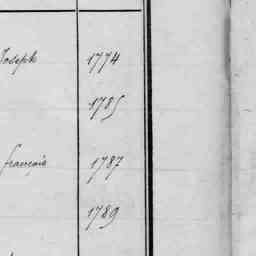 Joseph 1774
1785
francois 1787
1789